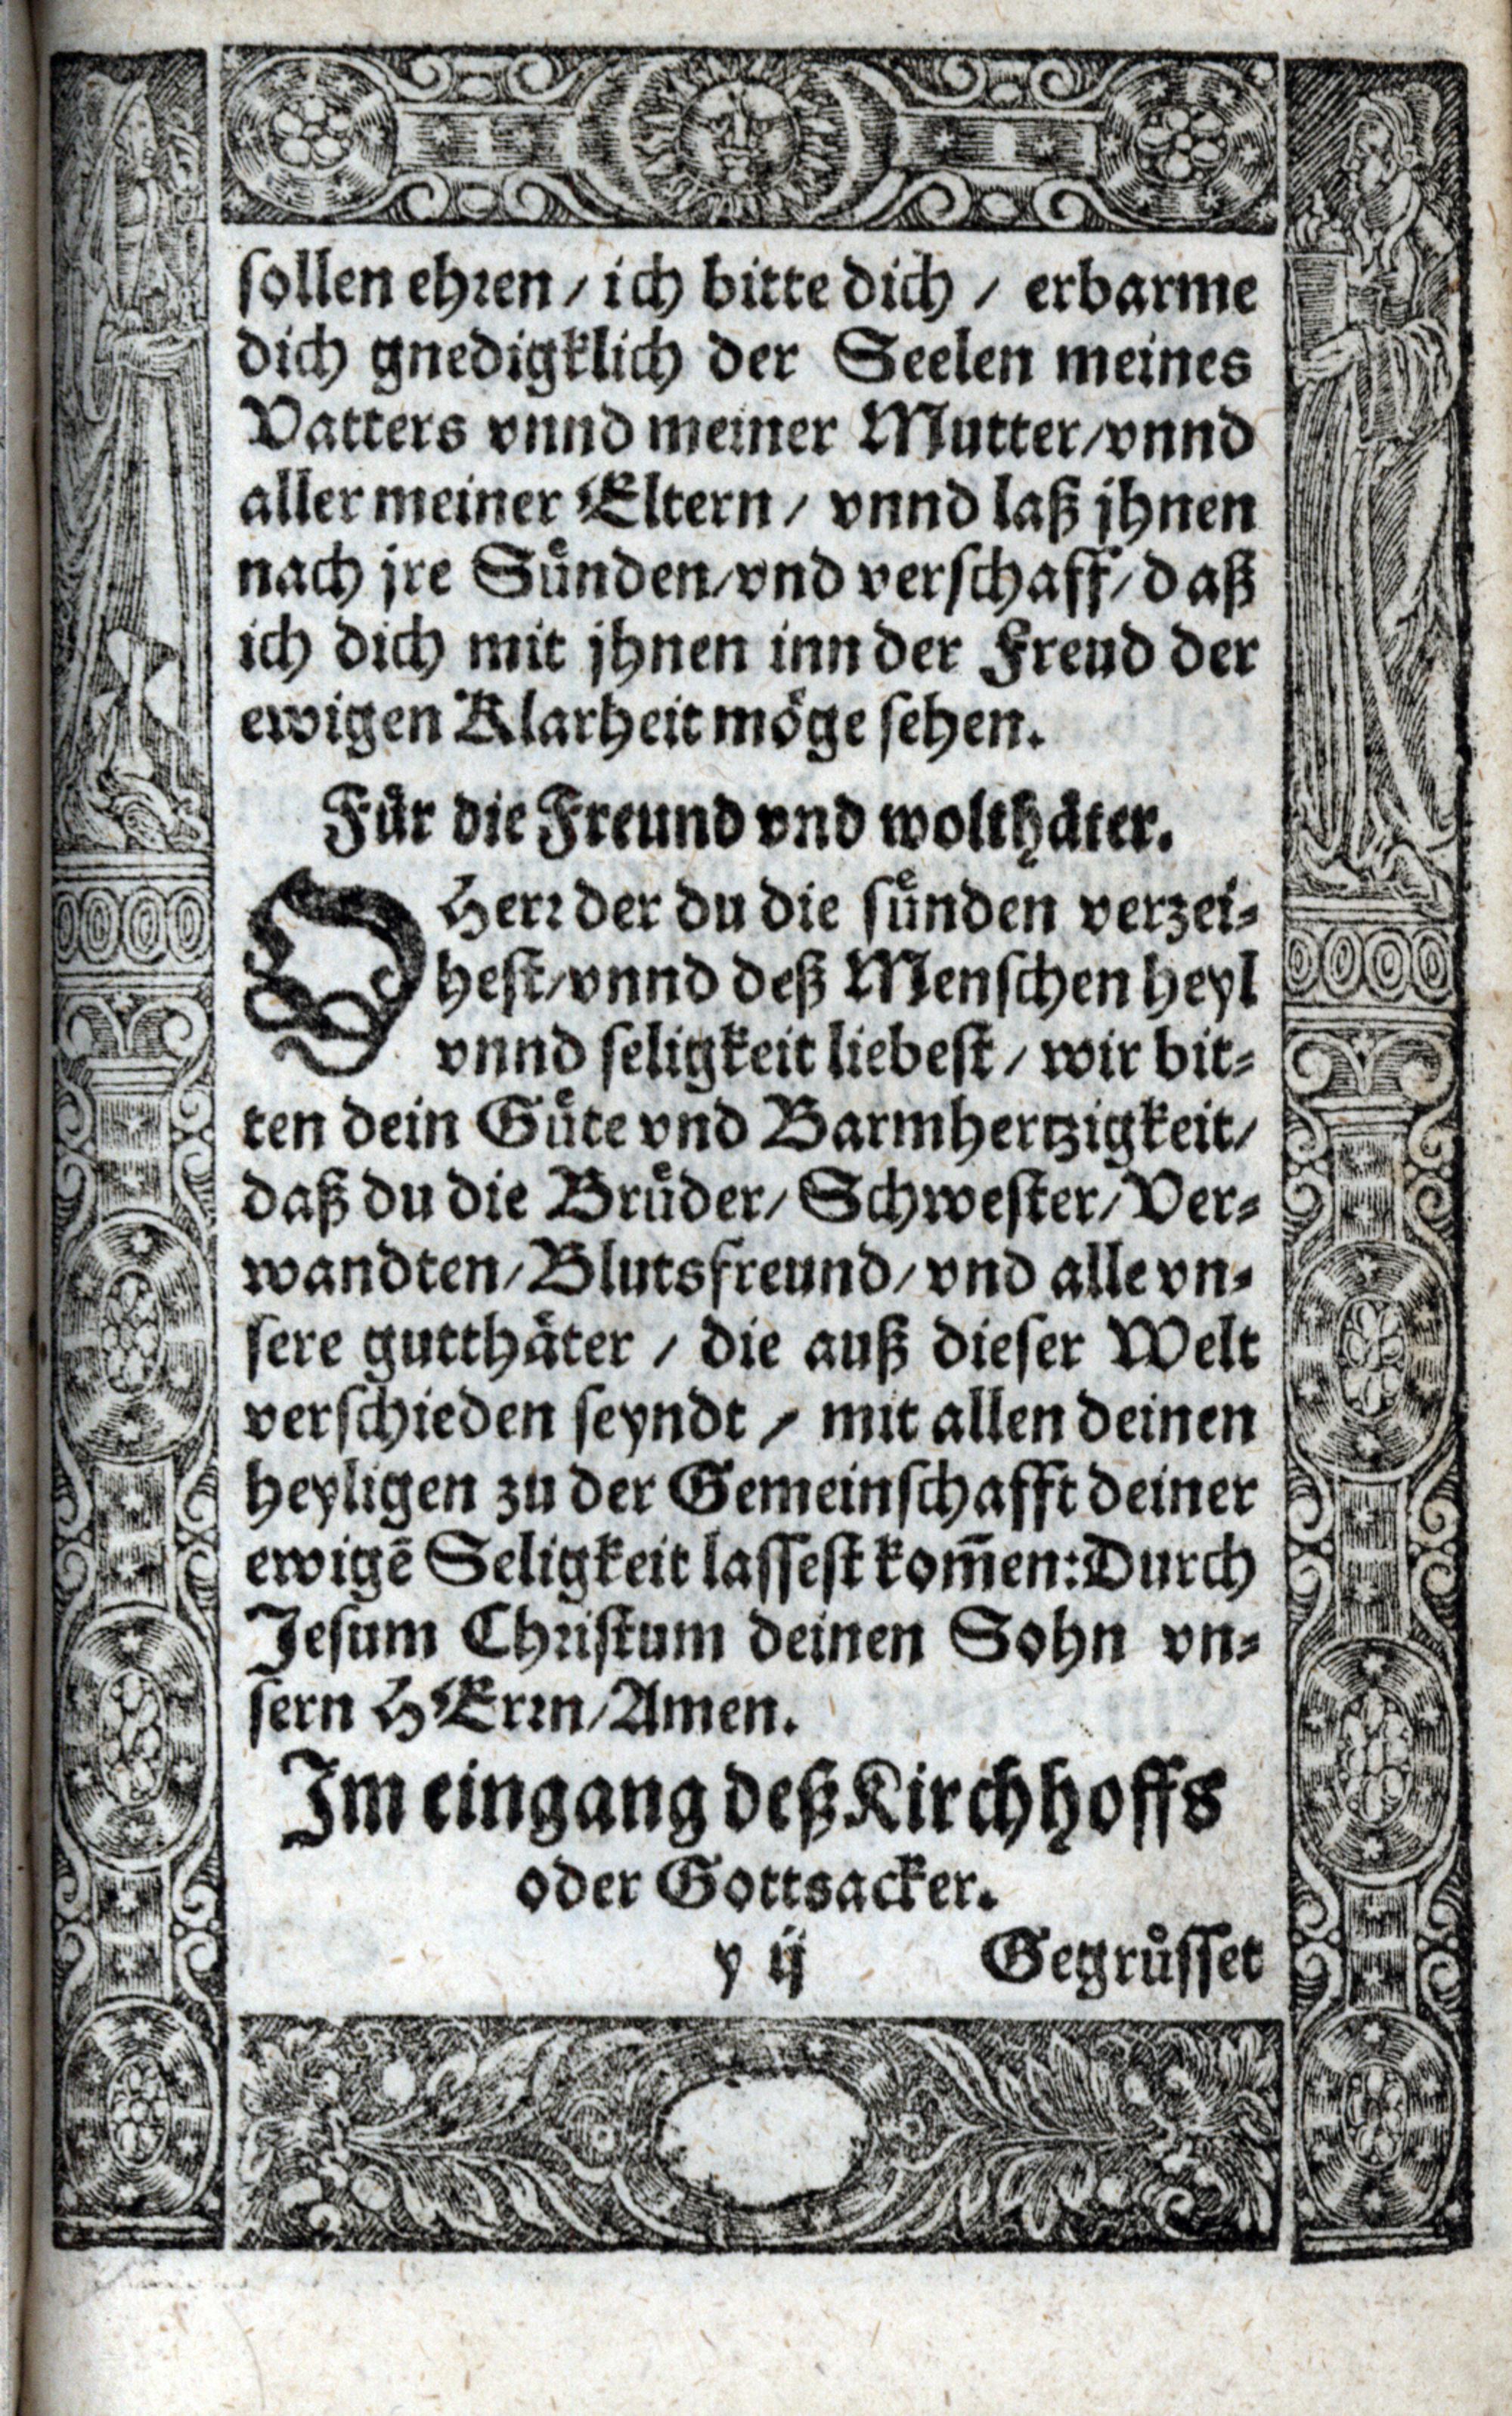 sollen ehren / ich bitte dich / erbarme
dich gnedigklich der Seelen meines
Vatters vnnd meiner Mutter/vnnd
aller meiner Eltern / vnnd laß jhnen
nach jre Suͤnden/vnd verschaff/daß
ich dich mit jhnen inn der Freud der
ewigen Klarheit moͤge sehen.
Fuͤr die Freund vnd wolthaͤter.
O Herr der du die suͤnden verzei⸗
hest/vnnd deß Menschen heyl
vnnd seligkeit liebest / wir bit⸗
ten dein Guͤte vnd Barmhertzigkeit/
daß du die Bruͤder/ Schwester/ Ver⸗
wandten/Blutsfreund/vnd alle vn⸗
sere gutthaͤter / die auß dieser Welt
verschieden seyndt / mit allen deinen
heyligen zu der Gemeinschafft deiner
ewigē Seligkeit lassest kom̄en:Durch
Jesum Christum deinen Sohn vn⸗
sern HErrn/Amen.
Im eingang deß Kirchhoffs
oder Gottsacker.
y ij Gegruͤsset